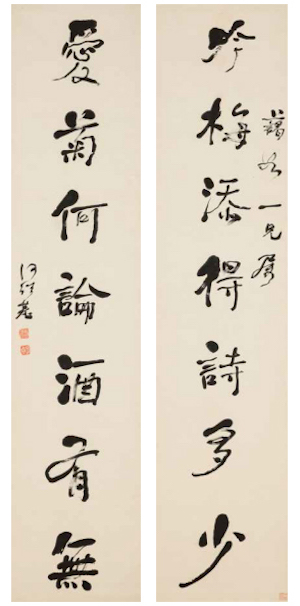 吟梅添得詩多少
一兄屬
愛菊何論酒有無
何紹基